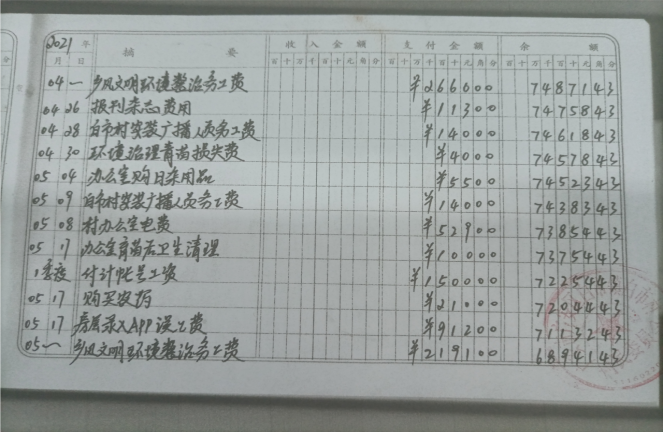 2021年 摘 要 收入金额 支付金额 余 额
月 日 百十万千百十元角分 百十万千百十元角分 百十万千百十元角分
04 一 乡风文明环境整治务工费 ¥266000 7487143
04 26 报刊杂志费用 ¥11300 7475843
04 28 白市村安装广播人员务工费 ¥14000 7461843
04 30 环境治理青苗损失费 ¥4000 7457843
05 04 办公室购日杂用品 ¥5500 7452343
05 09 白市村安装广播人员务工费 ¥14000 7438343
05 08 村办公室电费 ¥52900 7385443
05 17 办公室前后卫生清理 ¥10000 7375443
1季度 付计帐员工资 ¥150000 7225443
05 17 购买农药 ¥21000 7204443
05 17 房屋录入APP误工费 ¥91200 7113243
05 一 乡风文明环境整治务工费 ¥219100 6894143